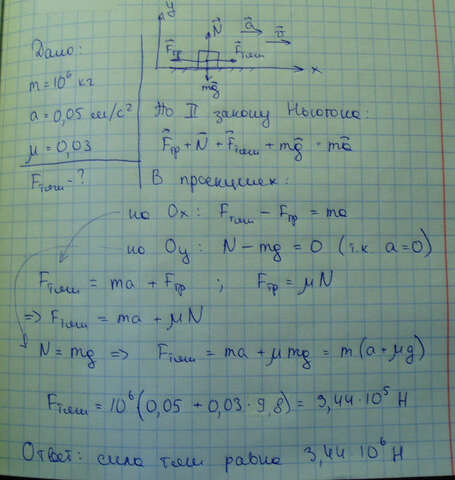 Дано:
m = 10⁶ кг
a = 0,05 м/с²
μ = 0,03
Fтяги - ?
y
N
a
v
Fтр
Fтяги
x
mg
По II закону Ньютона:
Fтр + N + Fтяги + mg = ma
В проекциях:
на Ox: Fтяги - Fтр = ma
на Oy: N - mg = 0 (т.к. a = 0)
Fтяги = ma + Fтр ; Fтр = μN
=> Fтяги = ma + μN
N = mg => Fтяги = ma + μmg = m(a + μg)
Fтяги = 10⁶(0,05 + 0,03 · 9,8) = 3,44 · 10⁵ Н
Ответ: сила тяги равна 3,44 · 10⁶ Н